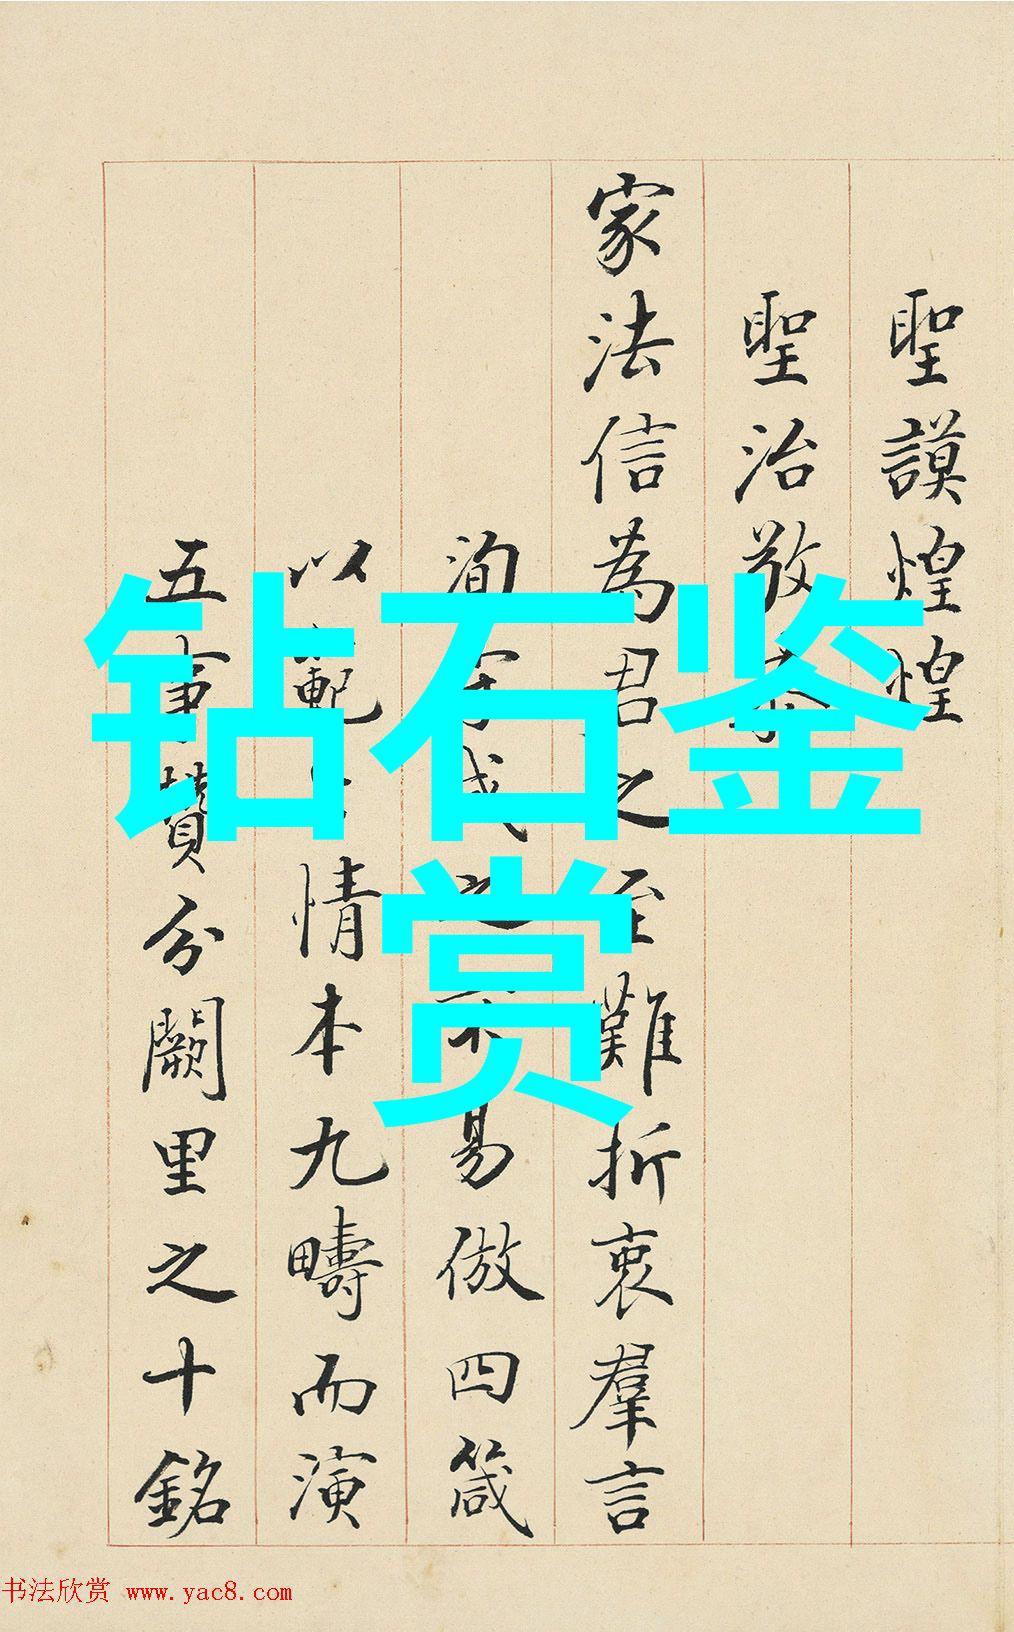 聖謨煌煌
聖治敬
家法信為君之至難折衷羣言
洵守成之不易倣四箴
以範情本九疇而演
五事讚分闕里之十銘
钻石鉴
赏
书法欣赏 www.yac8.com